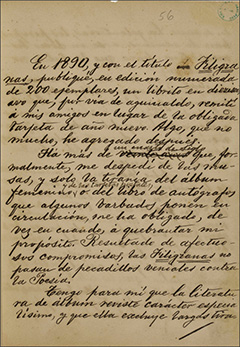 56
En 1890, y con el titulo Filigra
nas, publiqué, en edición numerada
de 200 ejemplares, un librito en
avo que, por via de aguinaldo, remití
á mis amigos en lugar de la obligada
tarjeta de año nuevo. Algo, que no
mucho, he agregado despues.
Há mas de que, for
malmente, me despedí de las mu
sas, y solo la tiranía del álbum
femenino, ó del libro de autógrafos
que algunos barbudos ponen en
circulación, me ha obligado, de
vez en cuando, á quebrantar mi
propósito. Resultado de afectuo
sos compromisos, las Filigranas no
pasan de pecadillos veniales contra
la Poesía.
Tengo para mí que la literatu
ra de álbum reviste carácter especia
lísimo, y que ella excluye largas tira